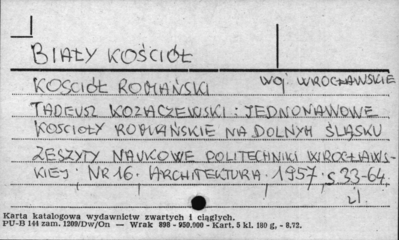 BIAŁY KOŚCIÓŁ
KOSCIÓŁ ROMAŃSKI WOJ. WROCŁAWSKIE
TADEUSZ KOZACZEWSKI: JEDNONAWOWE
KOSCIOŁY ROMAŃSKIE NA DOLNYM ŚLĄSKU
ZESZYTY NAUKOWE POLITECHNIKI WROCŁAWS-
KIEJ. NR 16. ARCHITEKTURA. 1957. S. 33-64.
il.
Karta katalogowa wydawnictw zwartych i ciągłych.
PU-B 144 zam. 1209/Dw/On — Wrak 898 - 950.000 - Kart. 5 kl. 180 g, - 8.72.